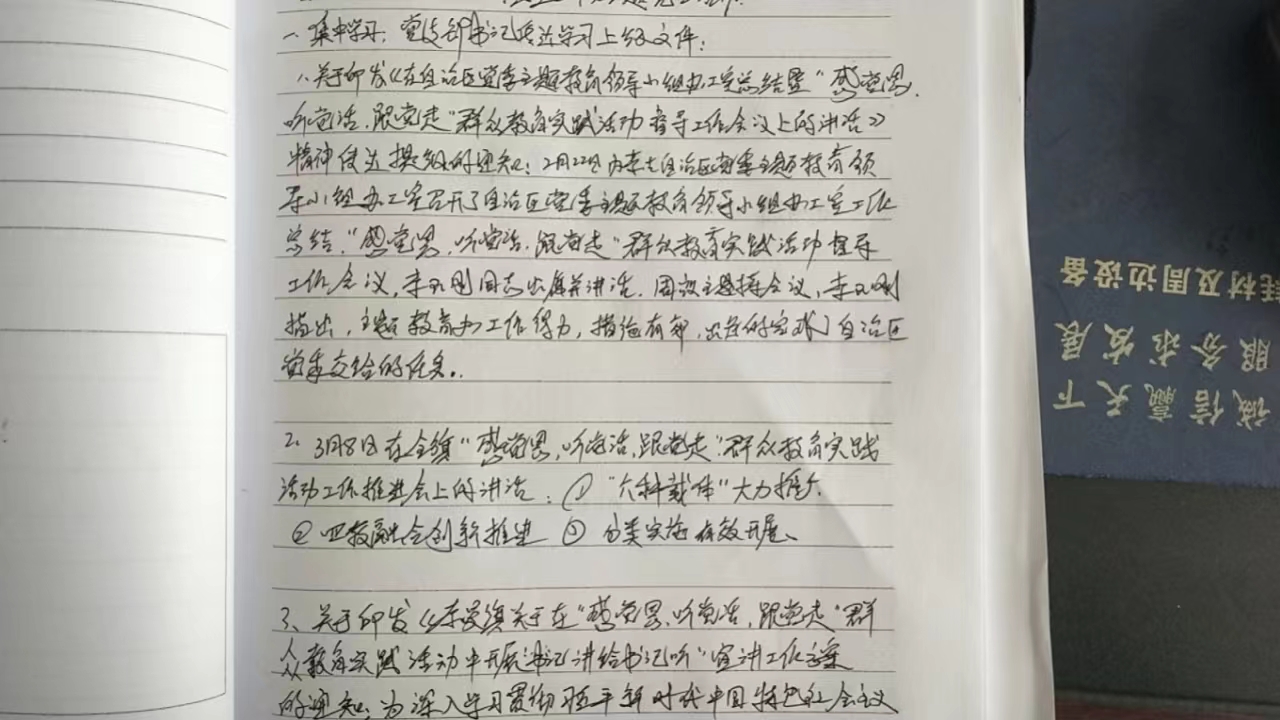 一、集中学习：党支部书记传达学习上级文件：
1、关于印发《在自治区党委主题教育领导小组办公室总结暨"感党恩、
听党话、跟党走"群众教育实践活动督导工作会议上的讲话》
精神传达提纲的通知：2月22日内蒙古自治区党委主题教育领
导小组办公室召开了自治区党委主题教育领导小组办公室工作
总结、"感党恩、听党话、跟党走"群众教育实践活动督导
工作会议，李 同志出席并讲话。 主持会议，李
指出，主题教育办工作得力，措施有效，出色的完成了自治区
党委交给的任务。
2、3月8日在全旗"感党恩，听党话，跟党走"群众教育实践
活动工作推进会上的讲话：① "六种载体"大力推广
② 四教融合创新推进 ③ 分类实施有效开展、
3、关于印发《 旗关于在"感党恩、听党话，跟党走"群
众教育实践活动中开展"书记讲给书记听"宣讲工作方案
的通知：为深入学习贯彻习近平新时代中国特色社会主义
耗材及周边设备
服务求发展
诚信赢天下